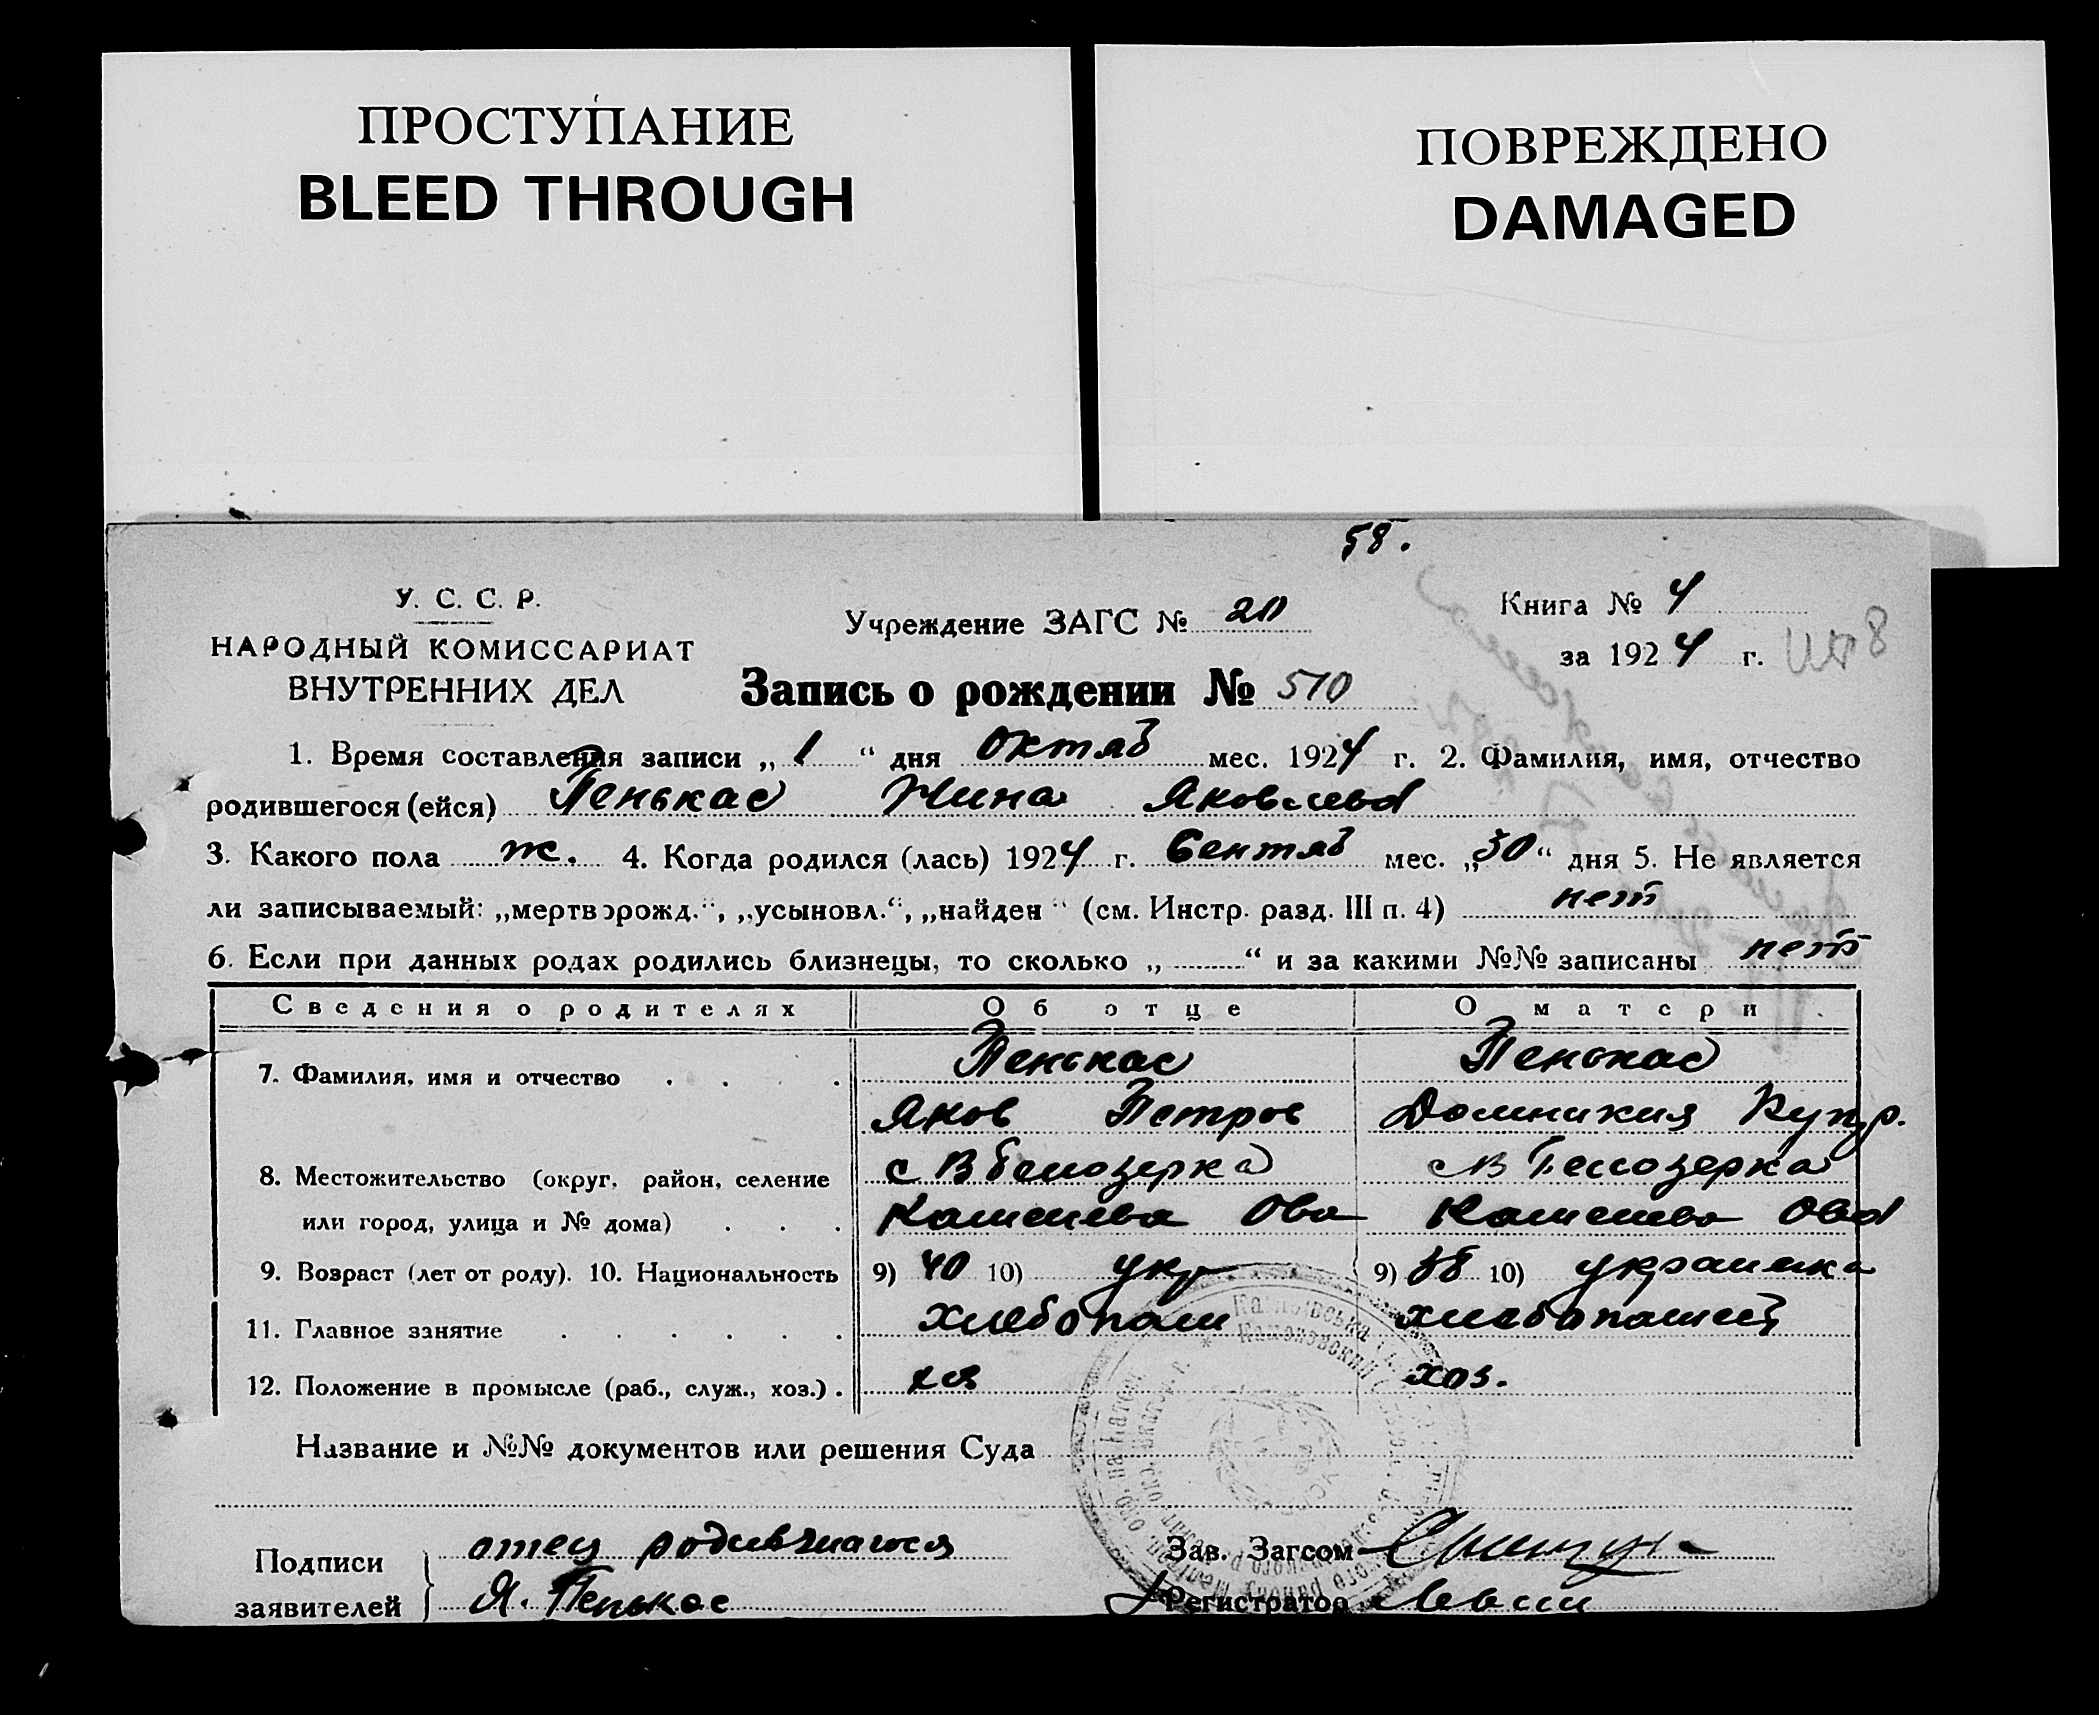 ПРОСТУПАНИЕ
BLEED THROUGH
ПОВРЕЖДЕНО
DAMAGED
58.
У. С. С. Р.
НАРОДНЫЙ КОМИССАРИАТ
ВНУТРЕННИХ ДЕЛ
Учреждение ЗАГС № 20
Книга № 4
за 1924 г.
Запись о рождении № 510
1. Время составления записи „ 1 “ дня Октяб мес. 1924 г. 2. Фамилия, имя, отчество
родившегося (ейся) Пенькас Нина Яковлева
3. Какого пола ж. 4. Когда родился (лась) 1924 г. Сентяб мес. „30“ дня 5. Не является
ли записываемый: „мертворожд.“, „усыновл.“, „найден“ (см. Инстр. разд. III п. 4) нет
6. Если при данных родах родились близнецы, то сколько „ “ и за какими №№ записаны нет
Сведения о родителях Об отце О матери
7. Фамилия, имя и отчество Пенькас Пенькас
Яков Петров Домникия Купр.
8. Местожительство (округ, район, селение с В Белозерка с В Белозерка
или город, улица и № дома)
9. Возраст (лет от роду). 10. Национальность 9) 40 10) укр 9) 38 10) украинка
11. Главное занятие хлебопаш хлебопашец
12. Положение в промысле (раб., служ., хоз.) хоз.
Название и №№ документов или решения Суда
Подписи заявителей
отец родившагося
Я. Пенькас
Зав. Загсом
Регистратор